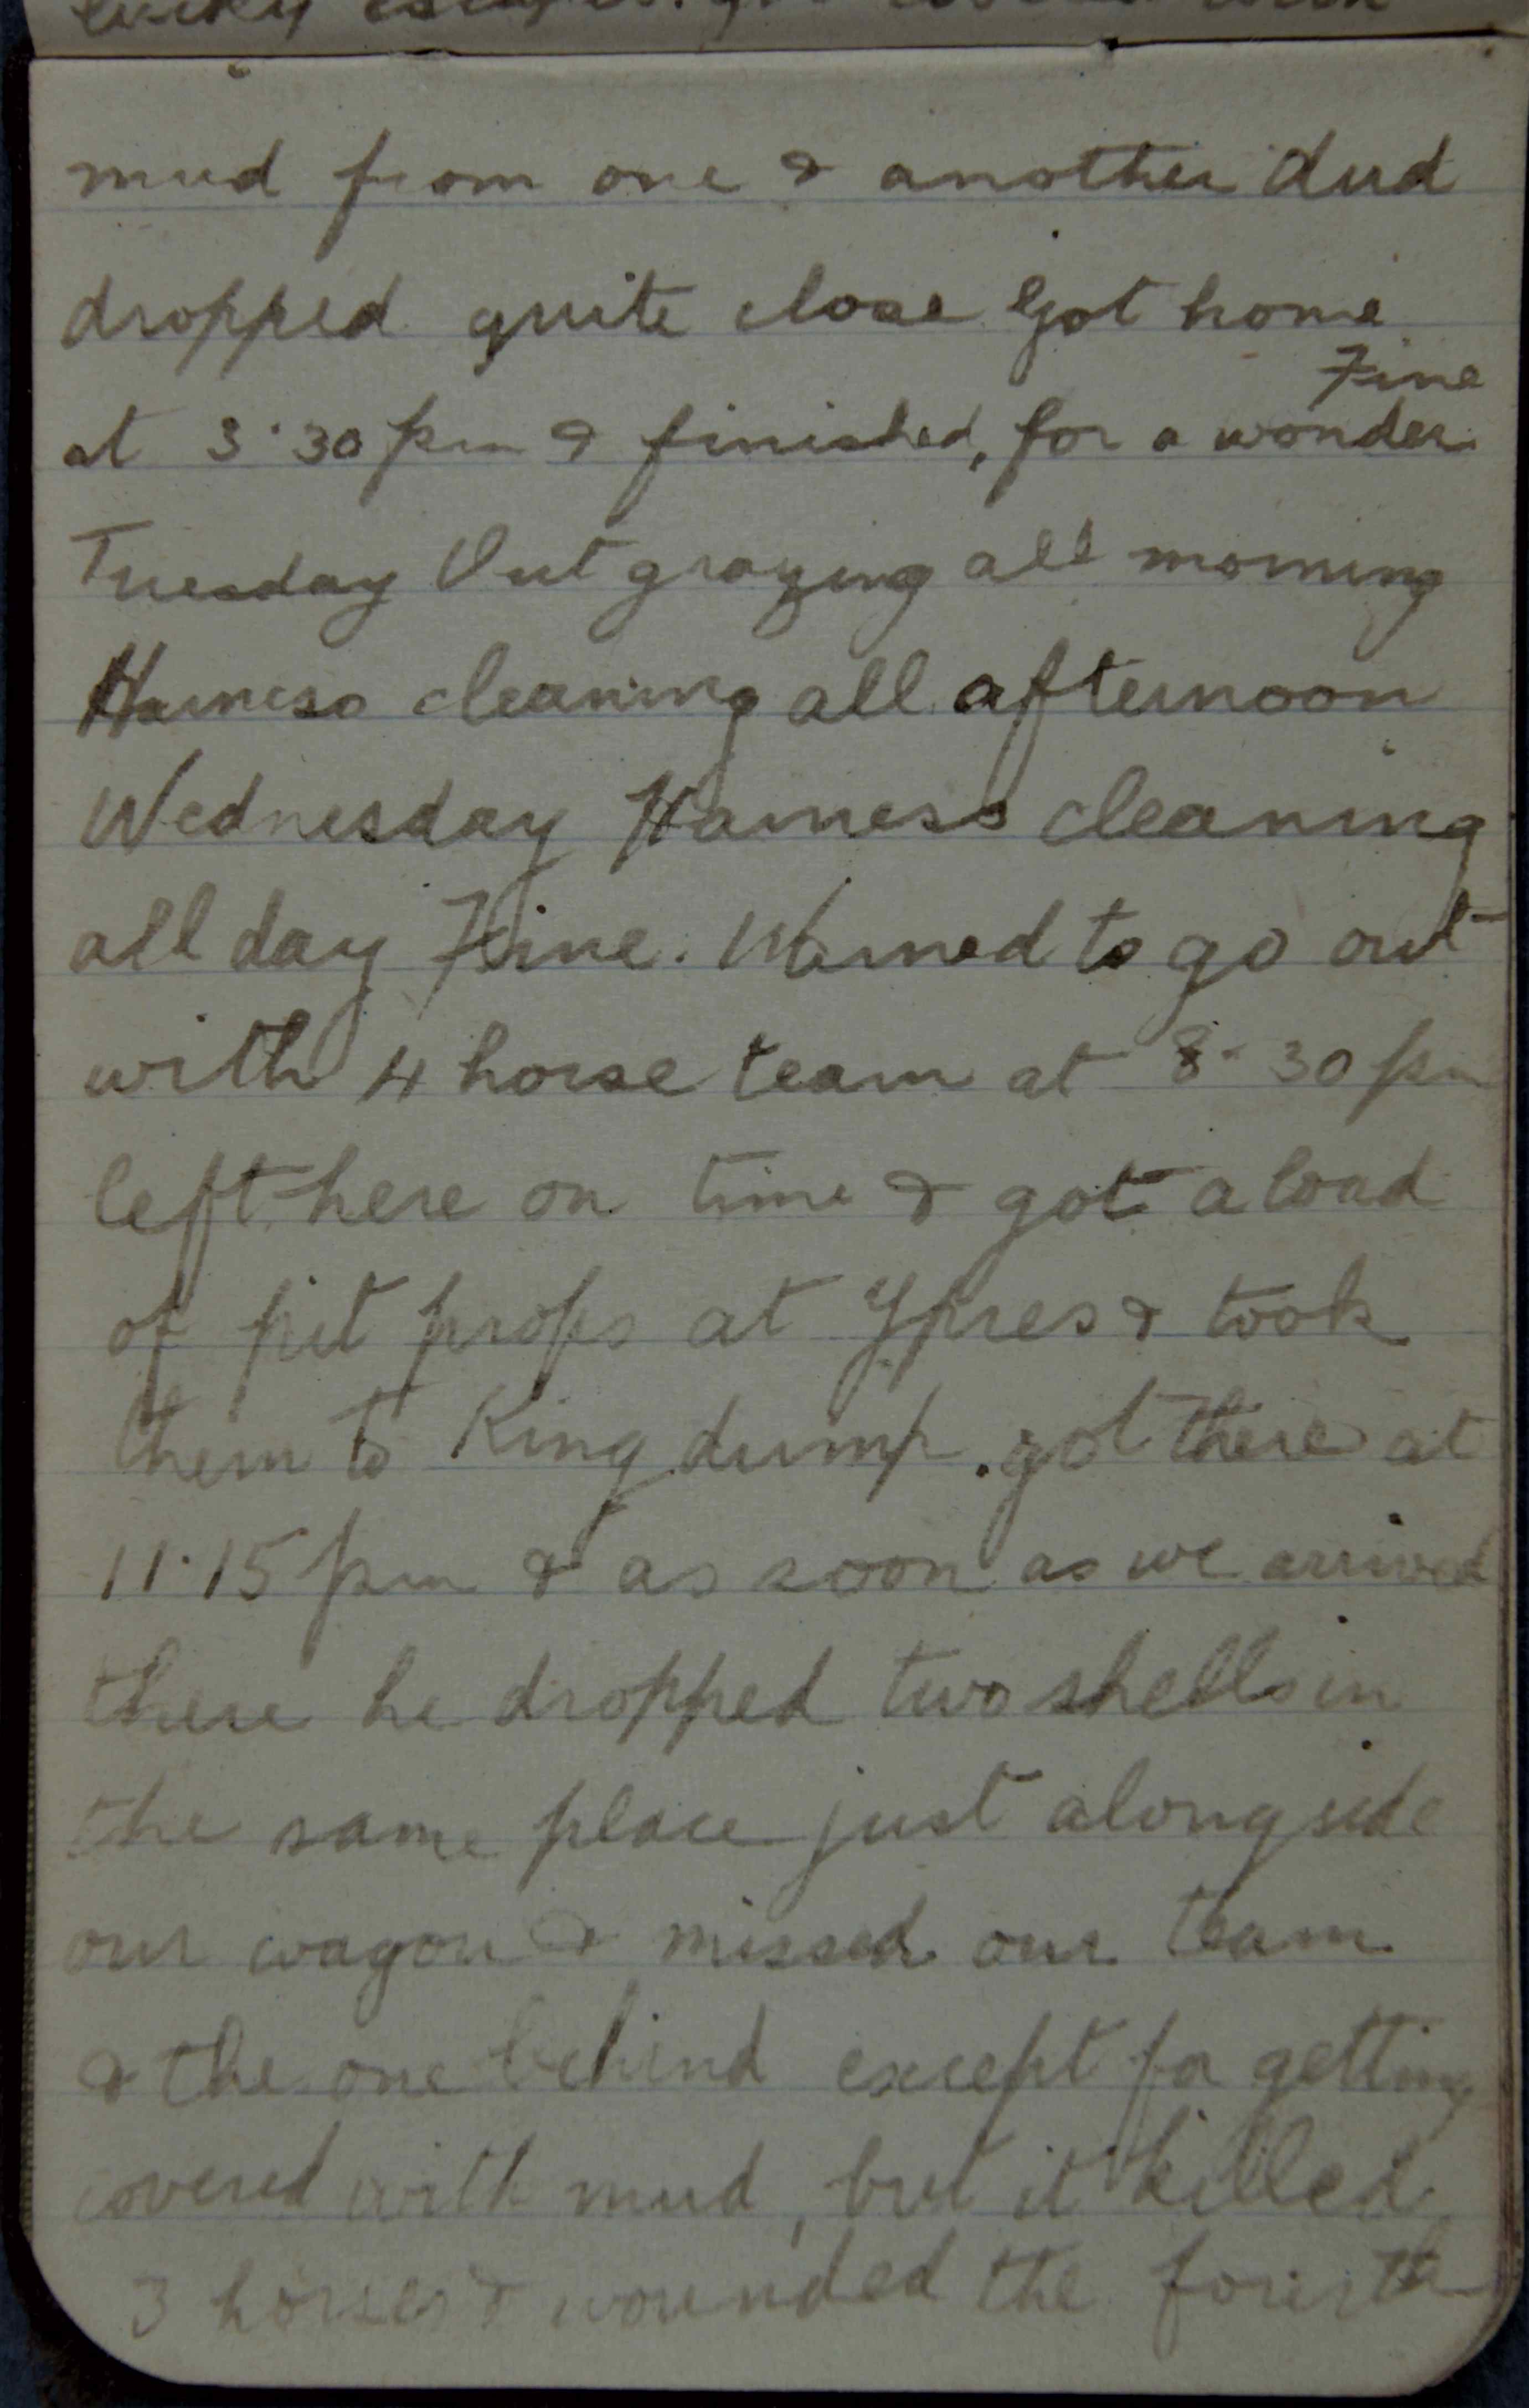 lucky escapes. got covered with
mud from one & another dud
dropped quite close Got home
Fine
at 3.30 pm & finished, for a wonder.
Tuesday Out grazing all morning
Harness cleaning all afternoon
Wednesday Harness cleaning
all day Fine. Warned to go out
with 4 horse team at 8.30 pm
left here on time & got a load
of pit props at Ypres & took
them to King dump. got there at
11.15 pm & as soon as we arrived
there he dropped two shells in
the same place just alongside
our wagon & missed our team
& the one behind except for getting
covered with mud, but it killed
3 horses & wounded the fourth